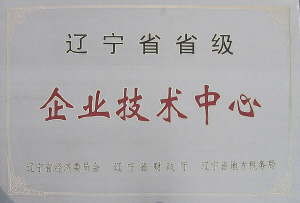 辽宁省省级
企业技术中心
辽宁省经济委员会 辽宁省财政厅 辽宁省地方税务局